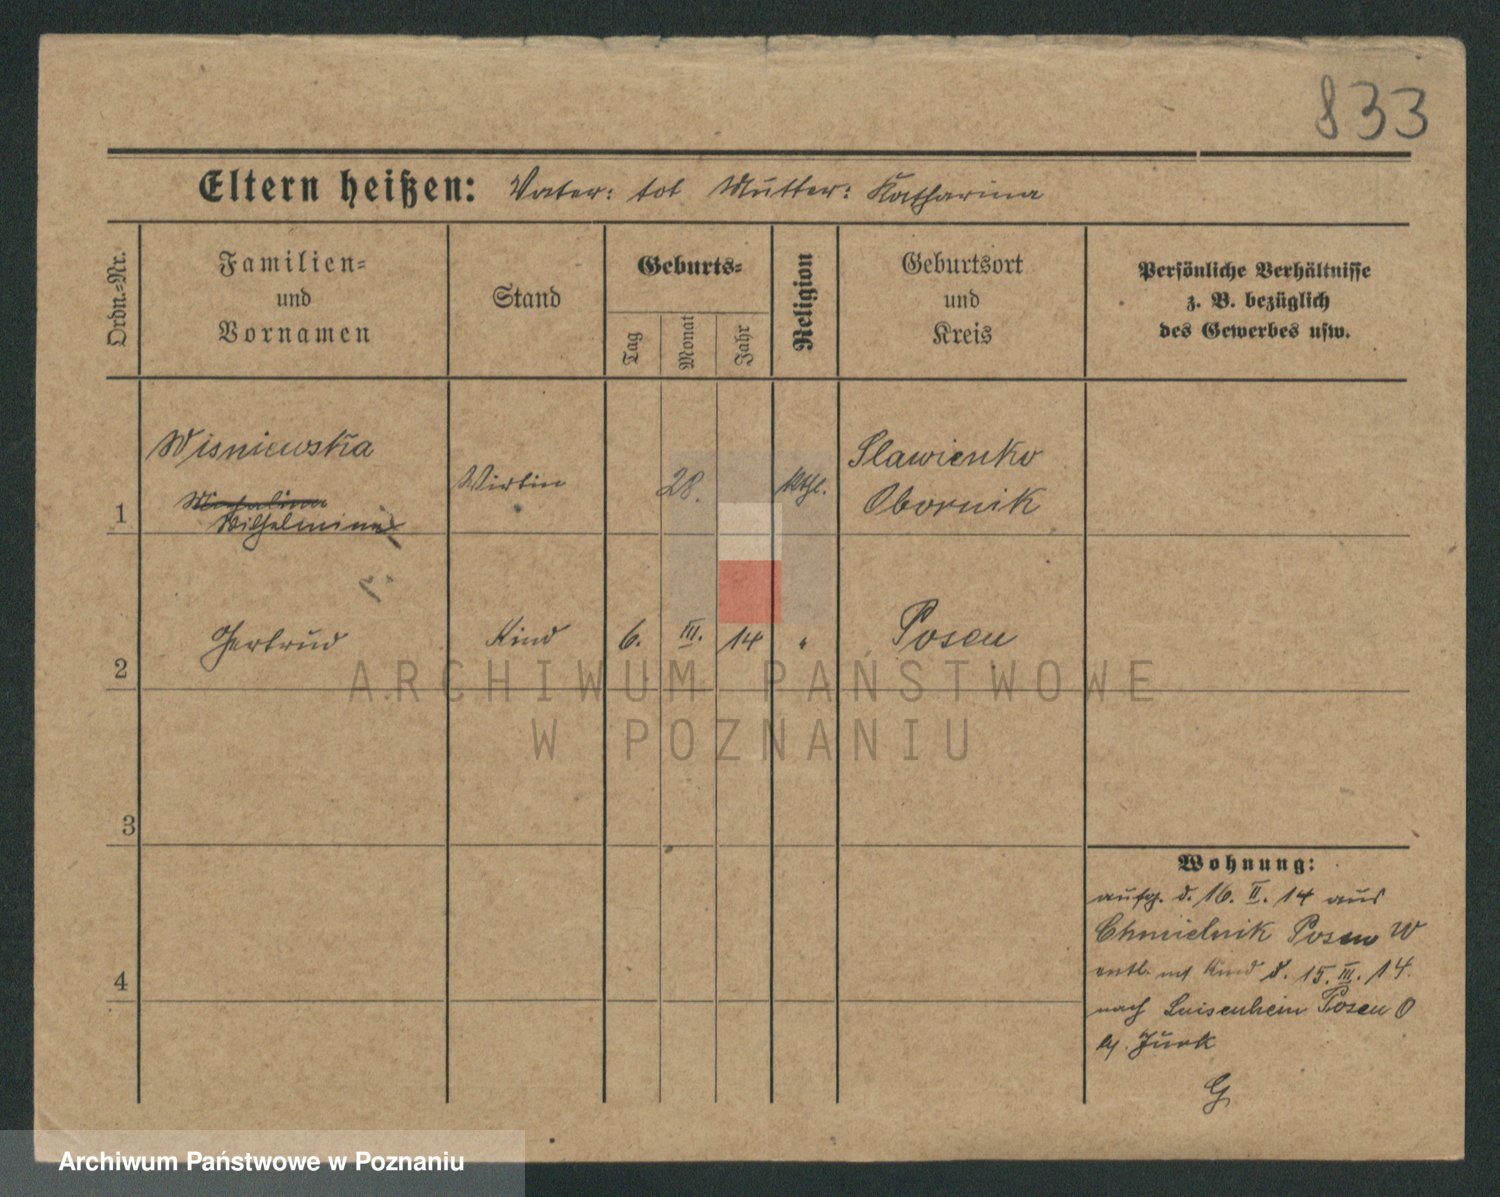 833
Eltern heißen: Vater: tot Mutter: Katharina
Ordn.-Nr.
Familien-
und
Vornamen
Stand
Geburts-
Tag
Monat
Jahr
Religion
Geburtsort
und
Kreis
Persönliche Verhältnisse
z. B. bezüglich
des Gewerbes usw.
Wisniewska
Wilhelmina
1
Wirtin
28.
kthl.
Slawienko
Obornik
2
Gertrud
Kind
6. III. 14
"
Posen
3
4
Wohnung:
aufg. d. 16. II. 14 aus
Chmielnik Posen W
entl. mit Kind d. 15. III. 14.
nach Luisenhein Posen O
G
ARCHIWUM PAŃSTWOWE
W POZNANIU
Archiwum Państwowe w Poznaniu